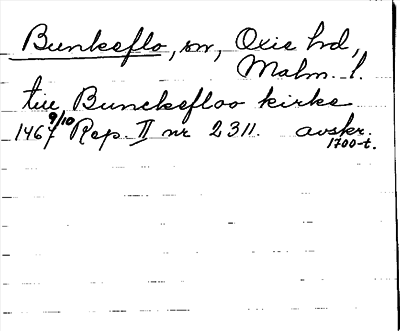 Bunkeflo, sn, Oxie hd,
Malm. l.
till Bunckefloo kirke
1467 9/10 Rep. II nr 2311. avskr.
1700-t.